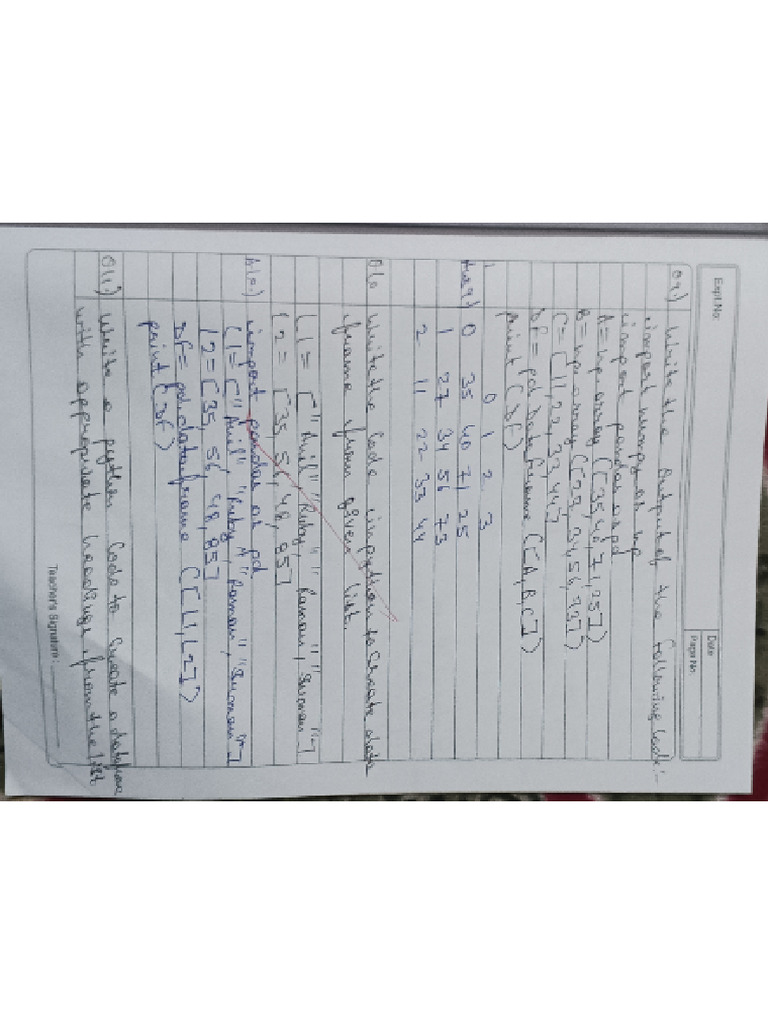 Expt. No.
Date
Page No.
Q9.) Write the Output of the following code:-
import numpy as np
import pandas as pd
A= np.array ([35,40,71,25])
B= np.array ([27, 34,56,73])
C= [11,22,33,44]
DF = pd.DataFrame ([A,B,C])
print (DF)
0 1 2 3
Ans9.) 0 35 40 71 25
1 27 34 56 73
2 11 22 33 44
Q10 Write the code in python to create data
frame from given list.
L1 = ["Anil", "Ruby", "Raman", "Suman"]
L2 = [35, 56, 48, 85]
A10.) import pandas as pd
L1= ["Anil" "Ruby, "Raman", "Suman"]
L2= [35, 56, 48, 85]
DF= pd.dataframe ([L1,L2])
print (DF)
Q11.) Write a python Code to Create a dataframe
with appropriate headings from the list
Teacher's Signature: